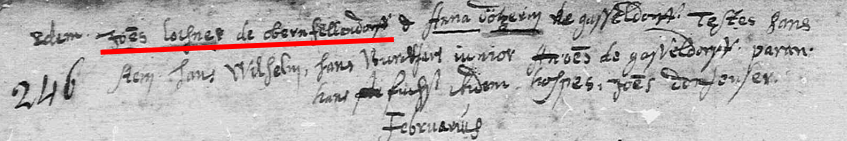 Edem. Joēs Lochner de obernfellendorff & Anna Götzerin de gasseldorff. Testes Hans
Item Hans Wilhelm, Hans Burckhart iunior Joēs de gasseldorff. paran.
246 hans fuchs ibidem. hospes. Joēs
Februarius